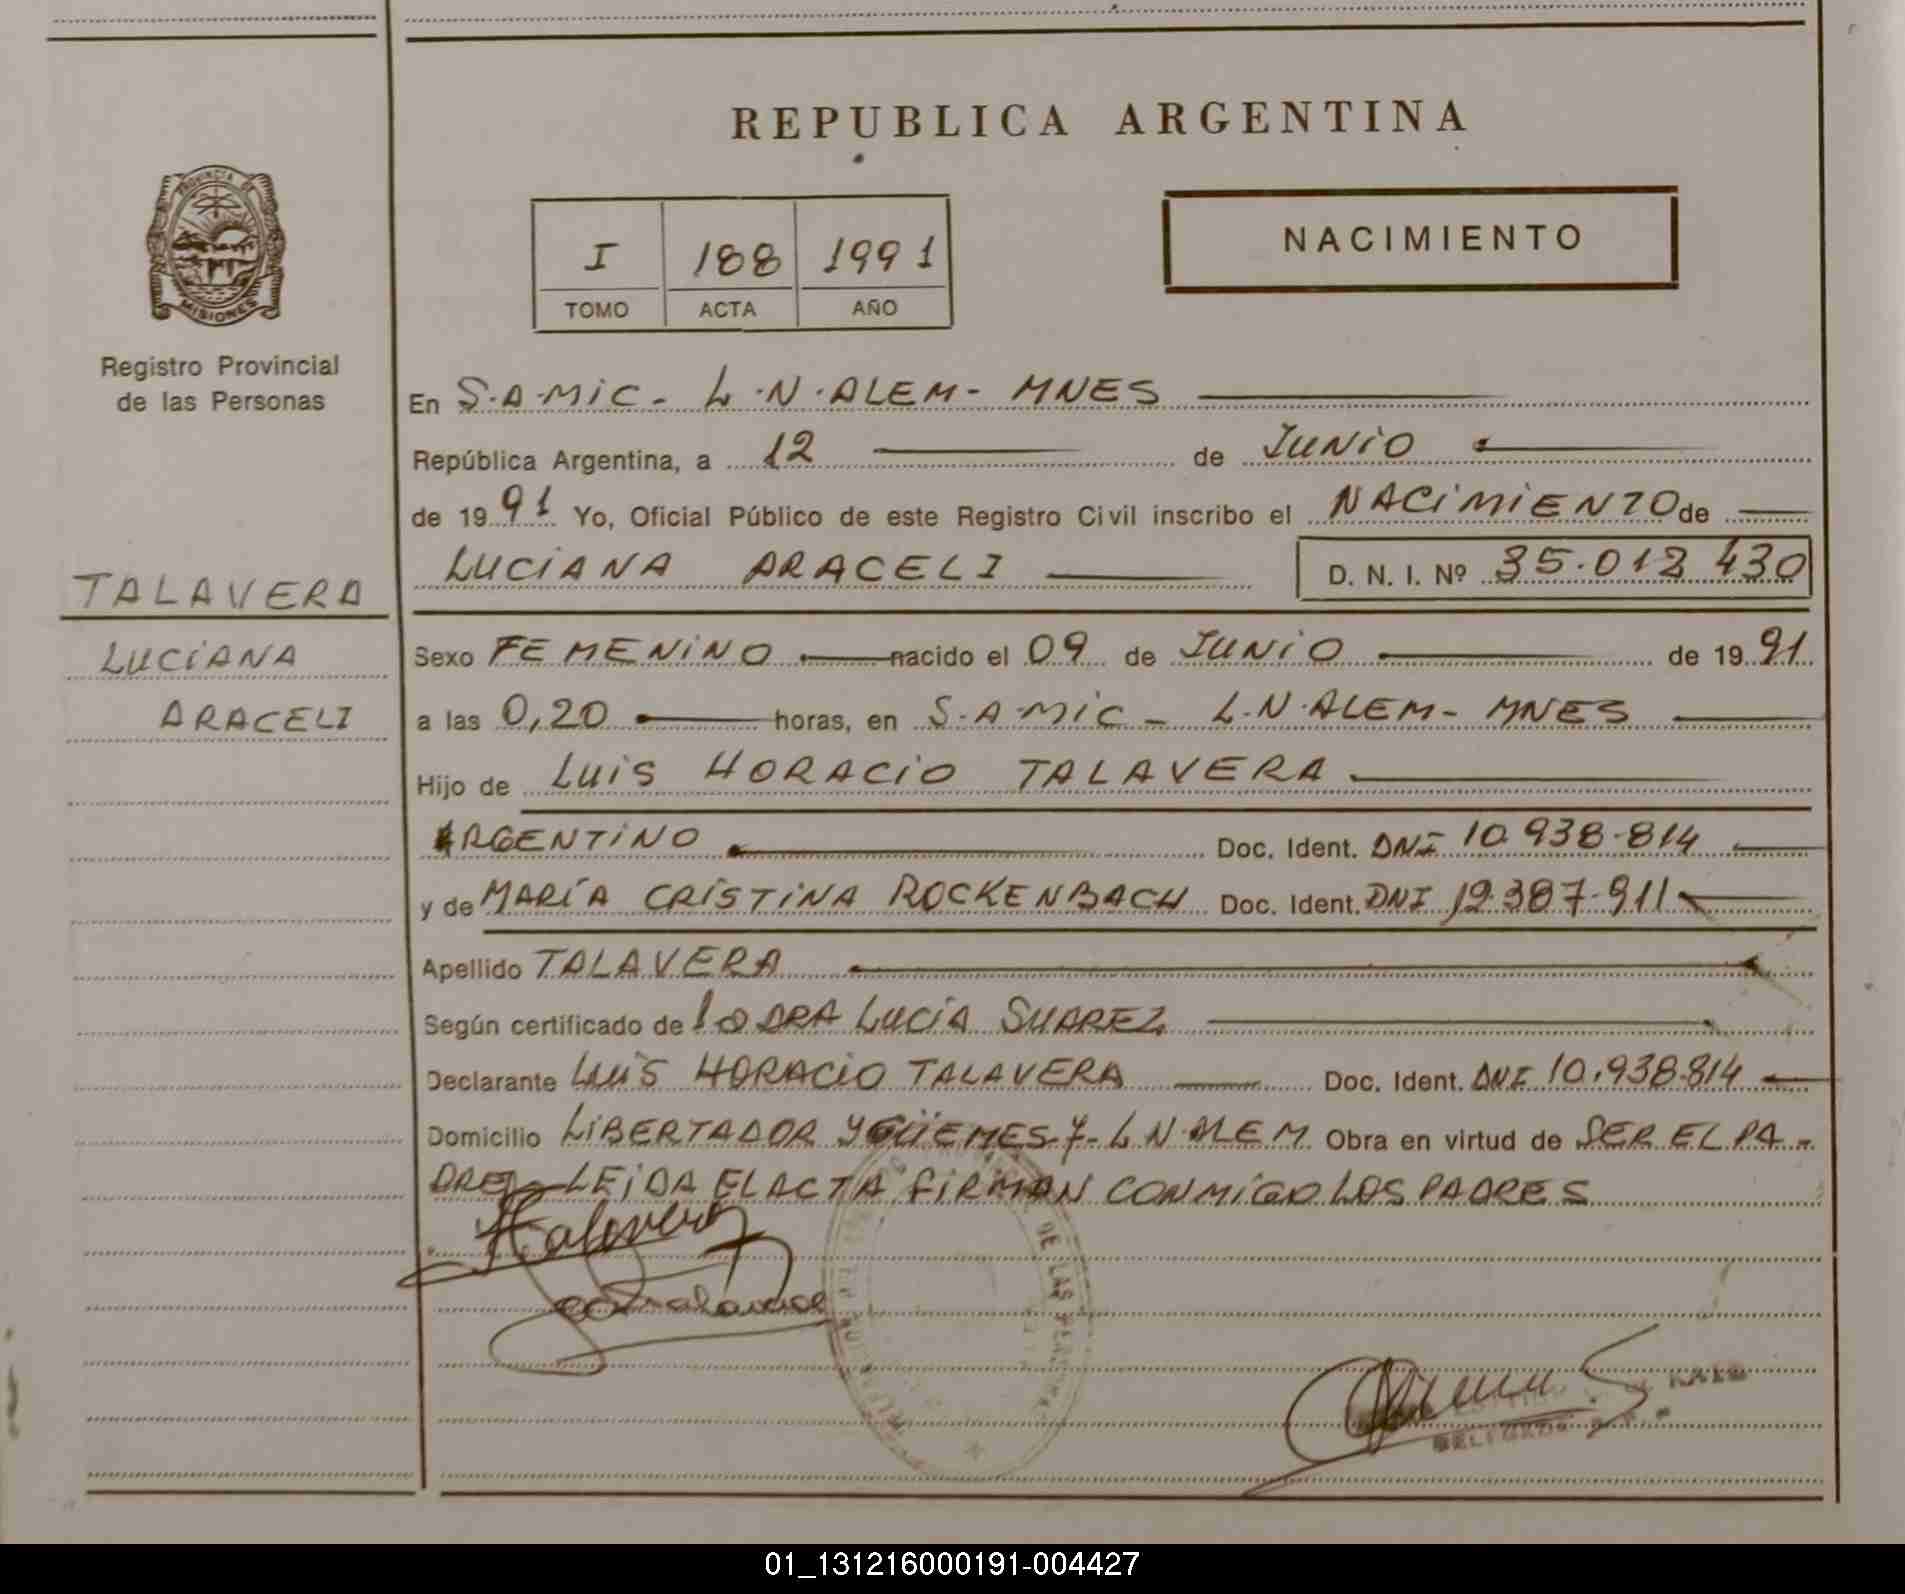 REPUBLICA ARGENTINA
PROVINCIA DE
MISIONES
Registro Provincial
de las Personas
I 188 1991
TOMO ACTA AÑO
NACIMIENTO
En S.A.MiC- L.N.ALEM- MNES
República Argentina, a 12 de JUNiO
de 1991 Yo, Oficial Público de este Registro Civil inscribo el NACiMiENTO de
LUCiANA ARACELI D. N. I. Nº 35.012 430
TALAVERA
LUCiANA
ARACELI
Sexo FEMENiNO nacido el 09 de JUNiO de 1991
a las 0,20 horas, en S.A.MiC- L.N.ALEM- MNES
Hijo de LUiS HORACiO TALAVERA
ARGENTiNO Doc. Ident. DNI 10.938.814
y de MARÍA CRiSTiNA ROCKENBACH Doc. Ident. DNI 12.387.911
Apellido TALAVERA
Según certificado de la DRA LUCÍA SUAREZ
Declarante LUiS HORACiO TALAVERA Doc. Ident. DNI 10.938.814
Domicilio LiBERTADOR Y GÜEMES - L N ALEM Obra en virtud de SER EL PA-
DRE LEiDA EL ACTA FiRMAN CONMiGO LOS PADRES
Talavera
DE LAS
01_131216000191-004427